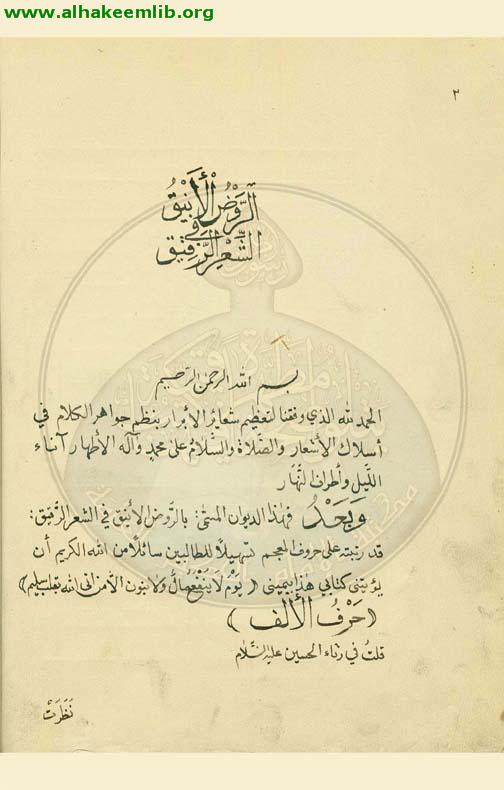 www.alhakeemlib.org
٢
الرَّوْضُ الْأَنِيْقُ
في
الشِّعْرِ الرَّقِيْقِ
بسم الله الرحمن الرحيم
الحمد لله الذي وفقنا لتعظيم شعائر الأبرار بنظم جواهر الكلام في
أسلاك الأشعار والصَّلاة والسَّلامُ على محمدٍ وآله الأطهار آناء
اللَّيل وأطراف النَّهار
وَبَعْدُ فهٰذا الديوان المسمّى: بالرَّوض الأنيق في الشعر الرَّقيق:
قد رتبته على حروف المعجم تسهيلًا للطالبين سائلًا من الله الكريم أن
يؤتيني كتابي هذا بيميني (يوْمَ لَا يَنْفَعُ مَالٌ ولا بنون الّا من اتى الله بقلب سليم)
(حَرْفُ الأَلِف)
قلتُ في رثاء الحسين عليه السَّلام
نَظَرَتْ